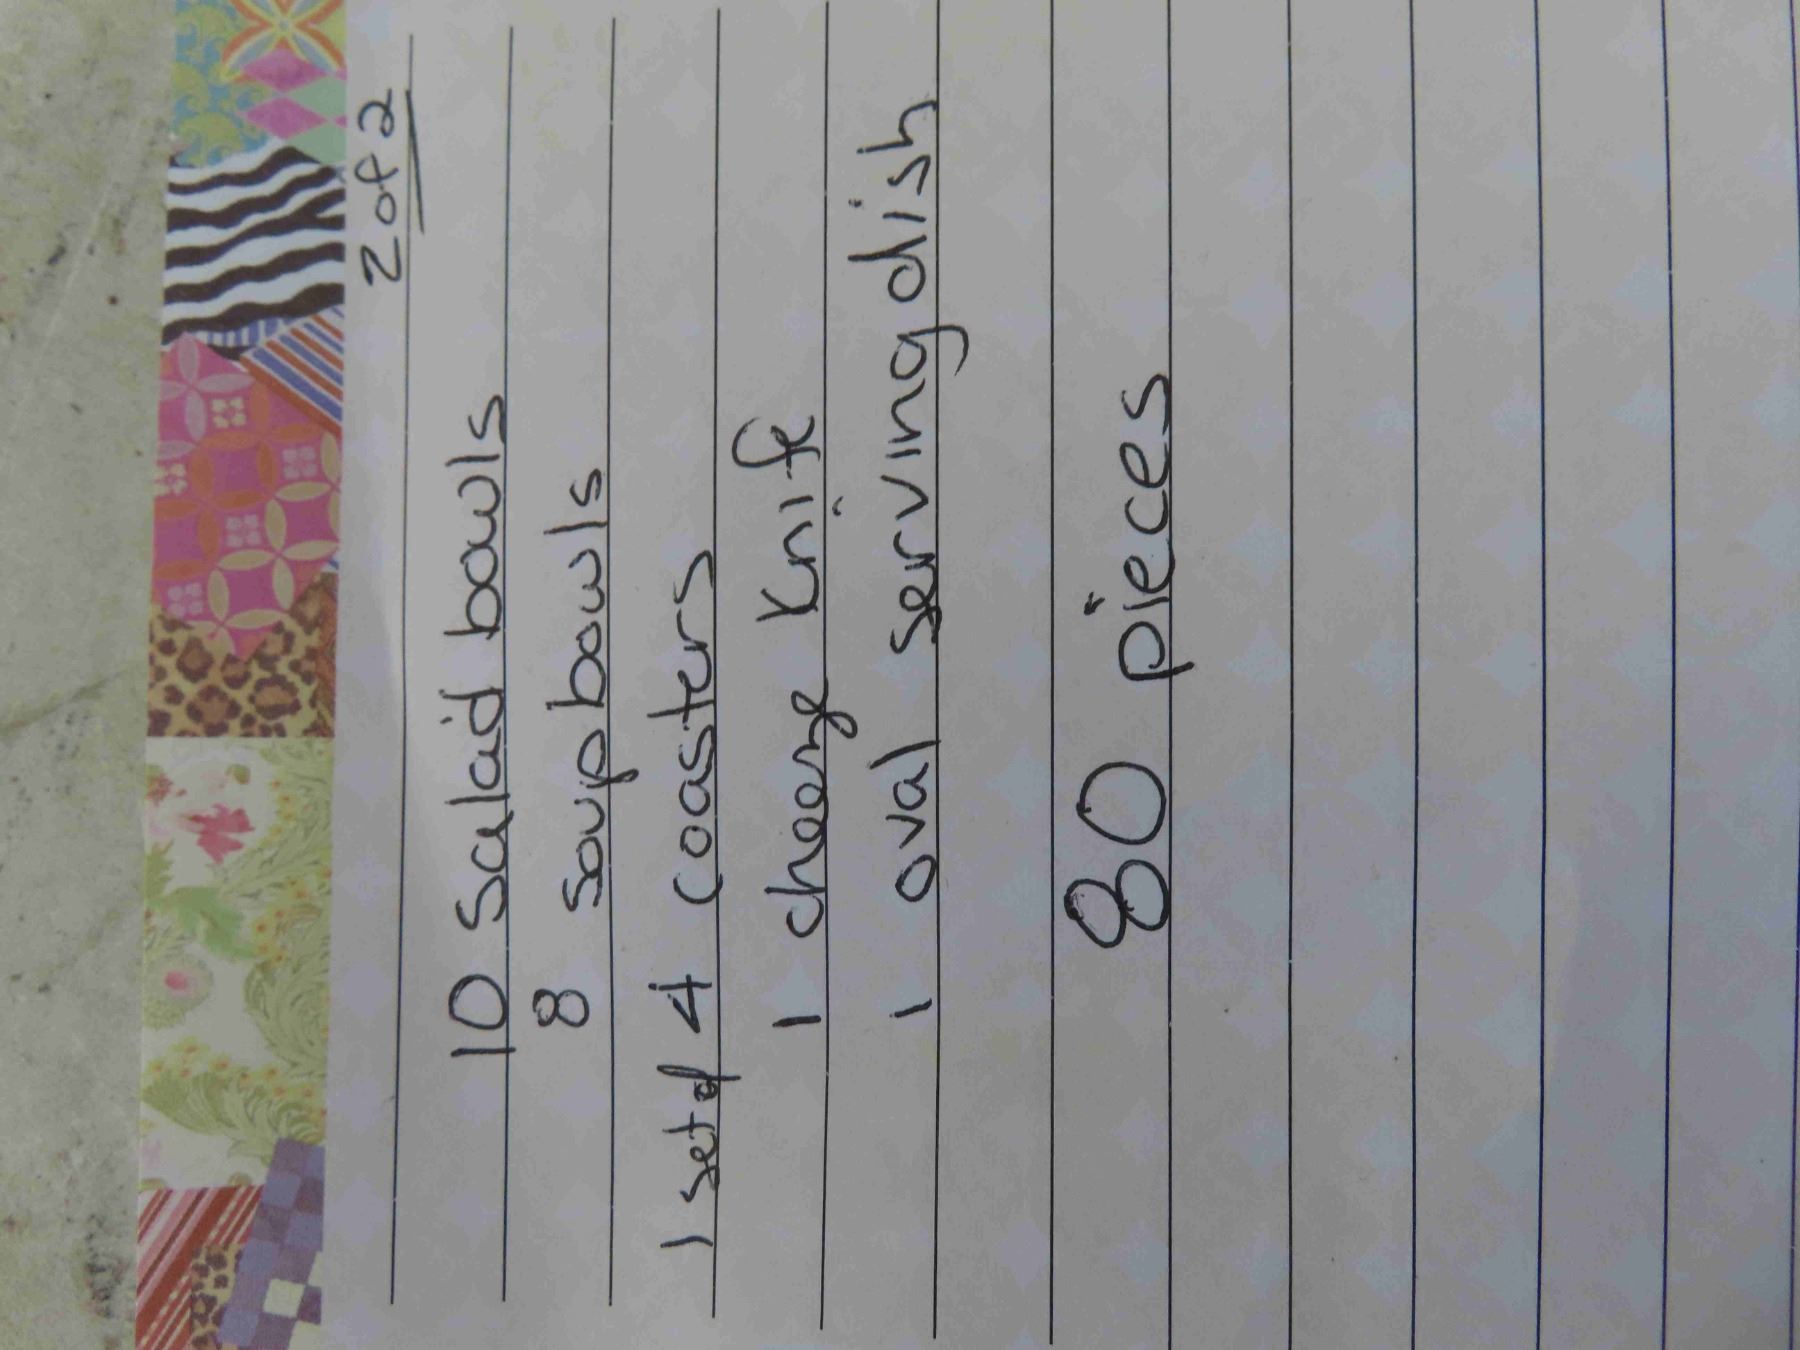 2 of 2
10 Salaid bowls
8 soup bowls
1 set of 4 coasters
1 cheese Knife
1 oval serving dish
80 pieces